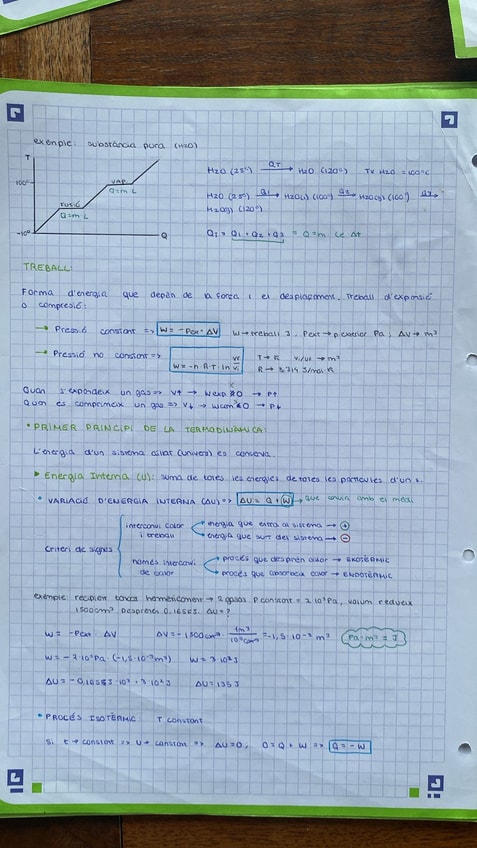 exemple: substància pura (H2O)
T
100°
VAP
Q=m·L
FUSIÓ
Q=m·L
-10°
Q
H2O (25°) QT → H2O (120°) TV H2O = 100°C
H2O (25°) Q1 → H2O(l) (100°) Q2 → H2O(g) (100°) Q3 →
H2O(g) (120°)
QT = Q1 + Q2 + Q3 = Q=m Ce Δt
TREBALL:
Forma d'energia que depèn de la força i el desplaçament. Treball d'expansió
o compresió:
→ Pressió constant => W = -Pext · ΔV W → treball J, Pext → p.exterior Pa, ΔV → m³
→ Pressió no constant => W = -n·R·T·ln Vf/Vi T → K Vi/Vf → m³
R → 8,314 J/mol·K
Quan s'expandeix un gas => V↑ → Wexp <0 → P↑
Quan es comprimeix un gas => V↓ → Wcom >0 → P↓
• PRIMER PRINCIPI DE LA TERMODINÀMICA:
L'energia d'un sistema aïllat (univers) es conserva.
► Energia Interna (U): suma de totes les energies de totes les partícules d'un s.
• VARIACIÓ D'ENERGIA INTERNA (ΔU) => ΔU = Q + W → que canvia amb el medi
Criteri de signes
intercanvi calor
i treball
energia que entra al sistema → +
energia que surt del sistema → -
només intercanvi
de calor
procés que desprèn calor → EXOTÈRMIC
procés que absorbeix calor → ENDOTÈRMIC
exemple: recipient tancat → 2 gasos P constant = 2·10⁵Pa, volum redueix
1500cm³. Desprenes 0,165KJ. ΔU=?
W = -Pext · ΔV ΔV = -1500cm³ · 1m³/10⁶cm³ = -1,5·10⁻³ m³ Pa·m³ = J
W = -2·10⁵Pa (-1,5·10⁻³m³) W = 3·10²J
ΔU = -0,165·10³ + 3·10²J ΔU = 135J
• PROCÉS ISOTÈRMIC T constant
Si t → constant => U → constant => ΔU=0, 0 = Q + W => Q = -W